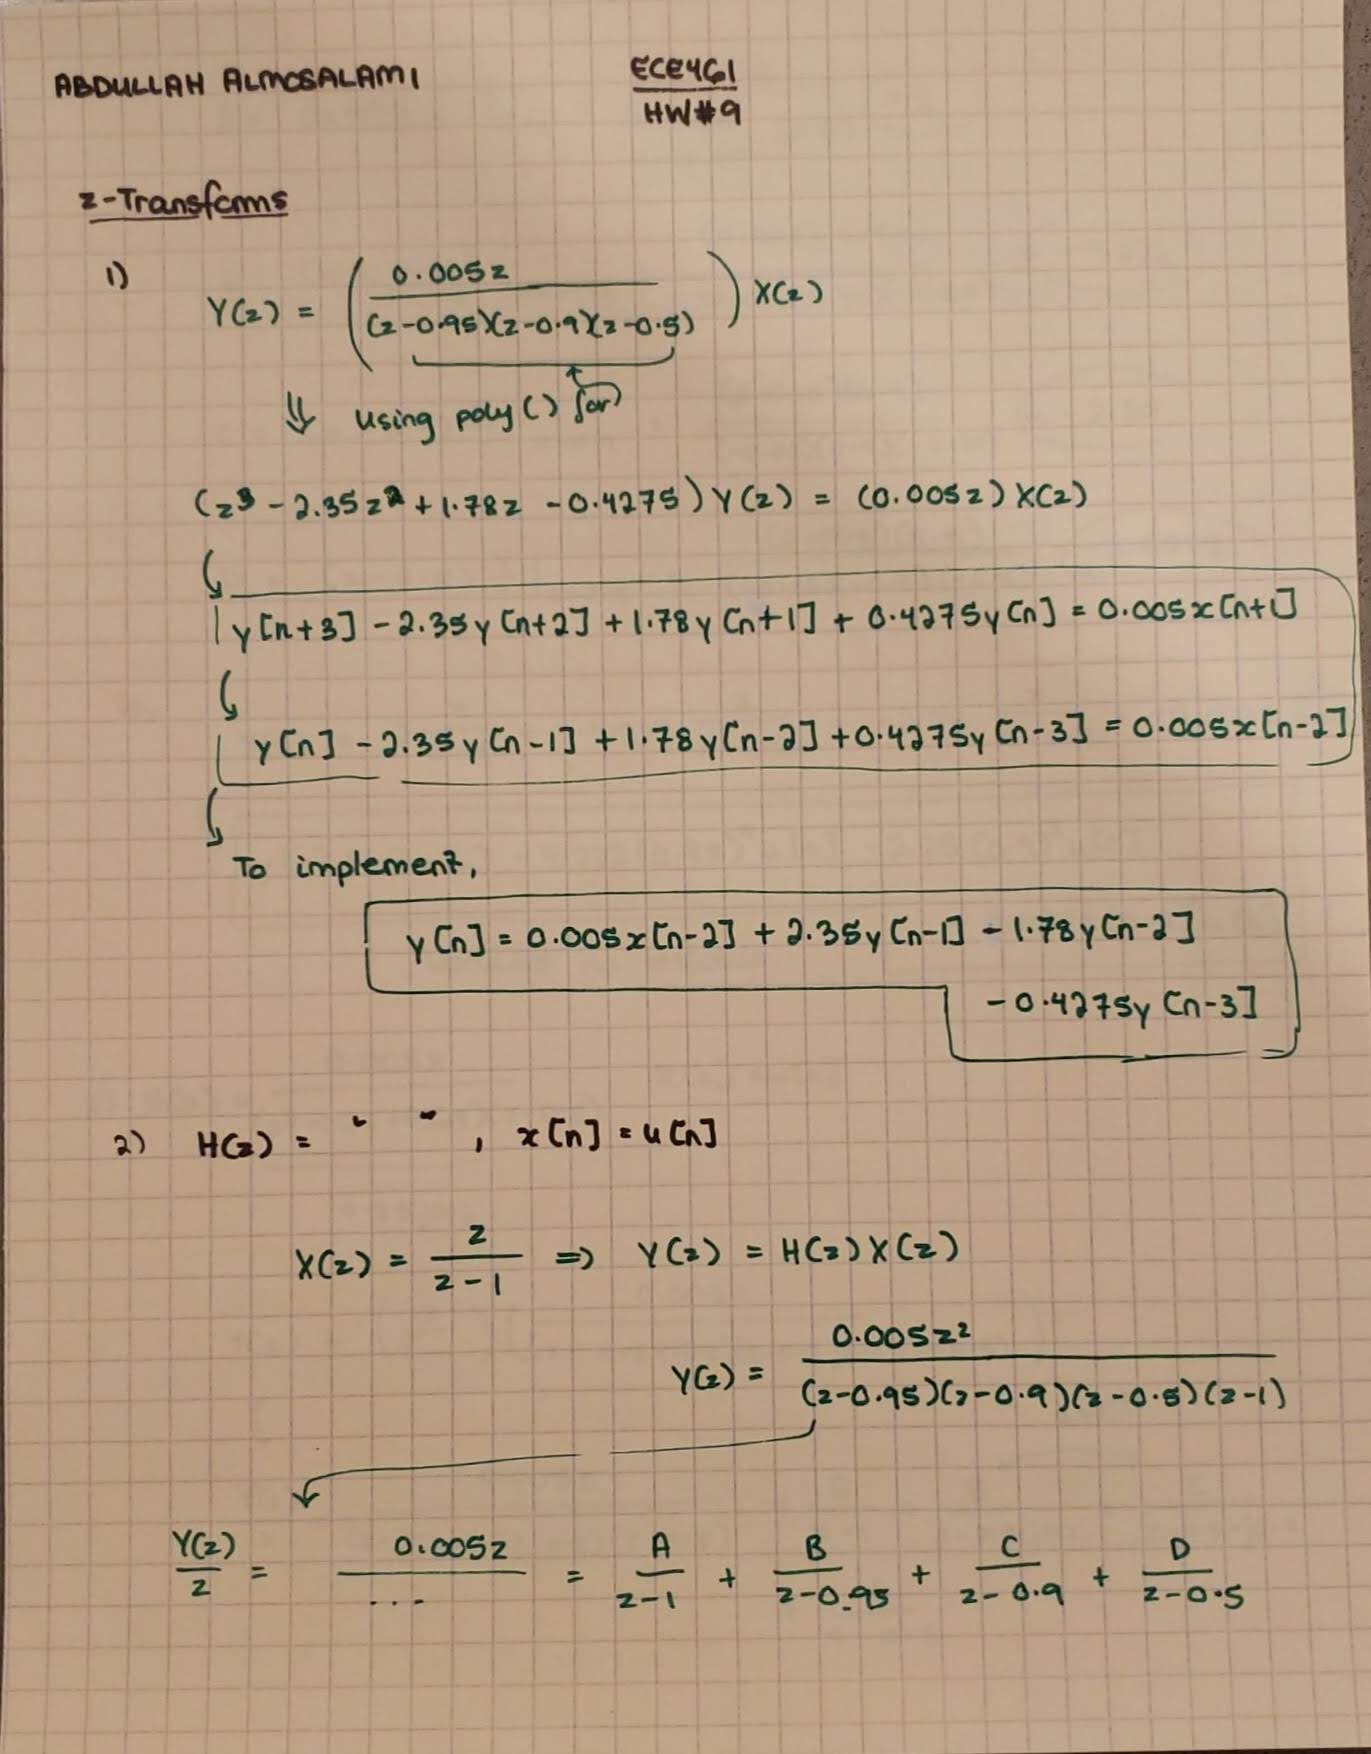 ABDULLAH ALMOSALAMI
ECE461
HW#9
z-Transforms
1) Y(z) = ( 0.005z / (z-0.95)(z-0.9)(z-0.5) ) X(z)
⇓ using poly() for
(z³ - 2.35z² + 1.78z - 0.4275) Y(z) = (0.005z) X(z)
y[n+3] - 2.35y[n+2] + 1.78y[n+1] + 0.4275y[n] = 0.005x[n+1]
y[n] - 2.35y[n-1] + 1.78y[n-2] + 0.4275y[n-3] = 0.005x[n-2]
To implement,
y[n] = 0.005x[n-2] + 2.35y[n-1] - 1.78y[n-2]
- 0.4275y[n-3]
2) H(z) = " " , x[n] = u[n]
X(z) = z / z-1 ⇒ Y(z) = H(z) X(z)
Y(z) = 0.005z² / (z-0.95)(z-0.9)(z-0.5)(z-1)
Y(z)/z = 0.005z / ... = A / z-1 + B / z-0.95 + C / z-0.9 + D / z-0.5